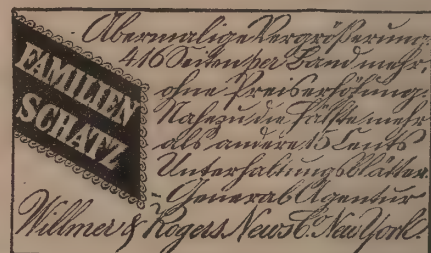 FAMILIEN
SCHATZ
Abermalige Vergrößerung
416 Seiten per Band mehr,
ohne Preiserhöhung.
Nahezu die Hälfte mehr
als andere 15 Cents
Unterhaltungs Blätter.
General Agentur
Willmer & Rogers News Co. New York.